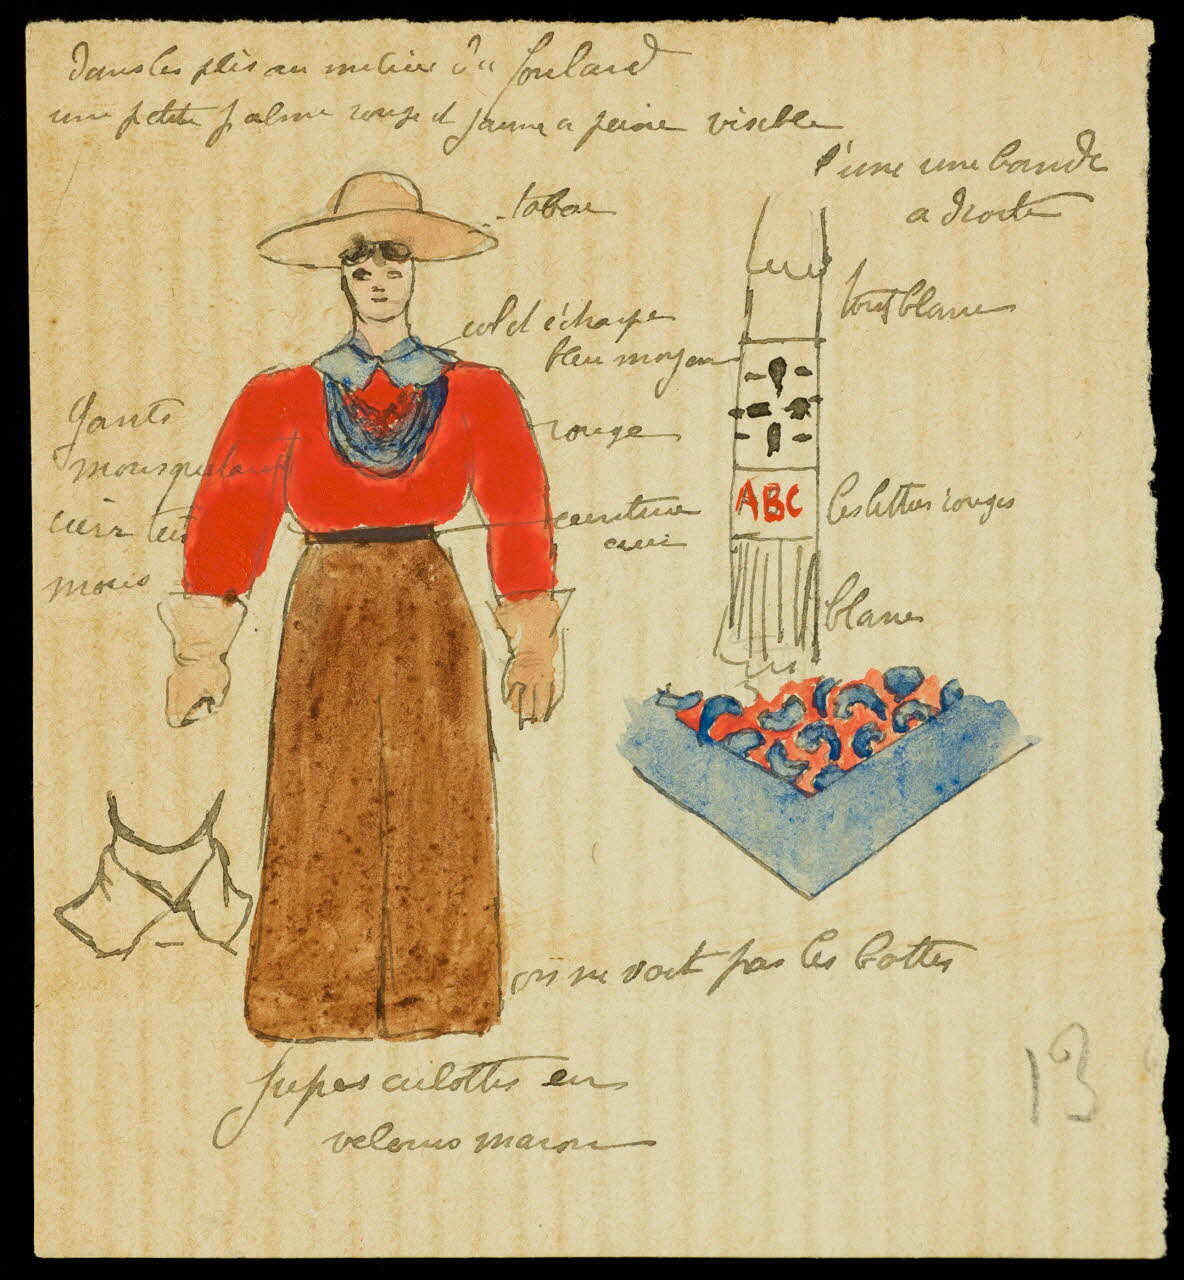 dans les plis au milieu du foulard
une petite palme rouge et jaune a peine visible
l'une une bande
a droite
tabac
tout blanc
col et écharpe
bleu moyen
gants
mousquetaire
cuir tres
rouge
ceinture
cuir
ABC
les lettres rouges
blanc
on ne voit pas les bottes
13
jupes culottes en
velours maron